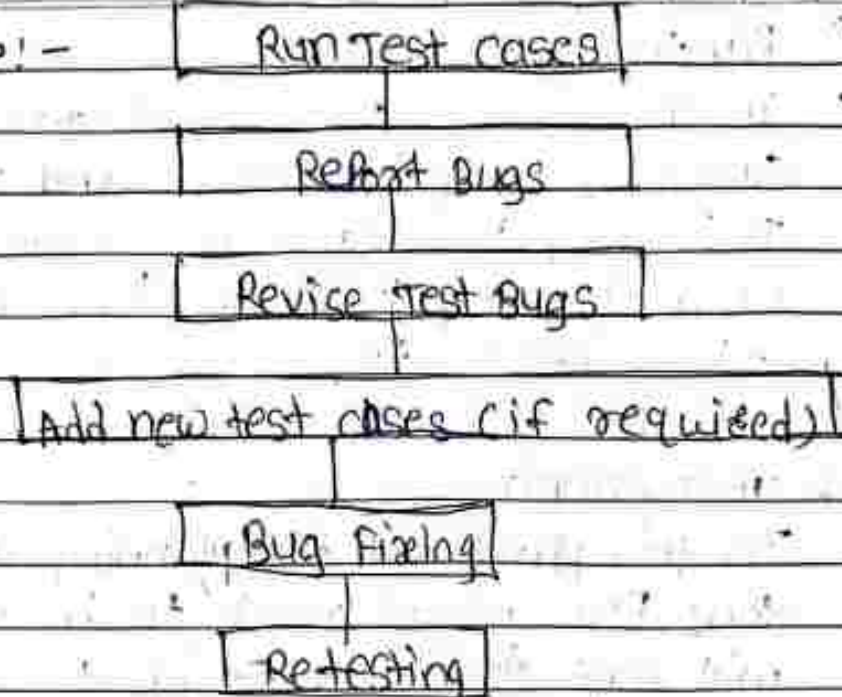 :-
Run Test cases
Report Bugs
Revise Test Bugs
Add new test cases (if required)
Bug Fixing
Retesting